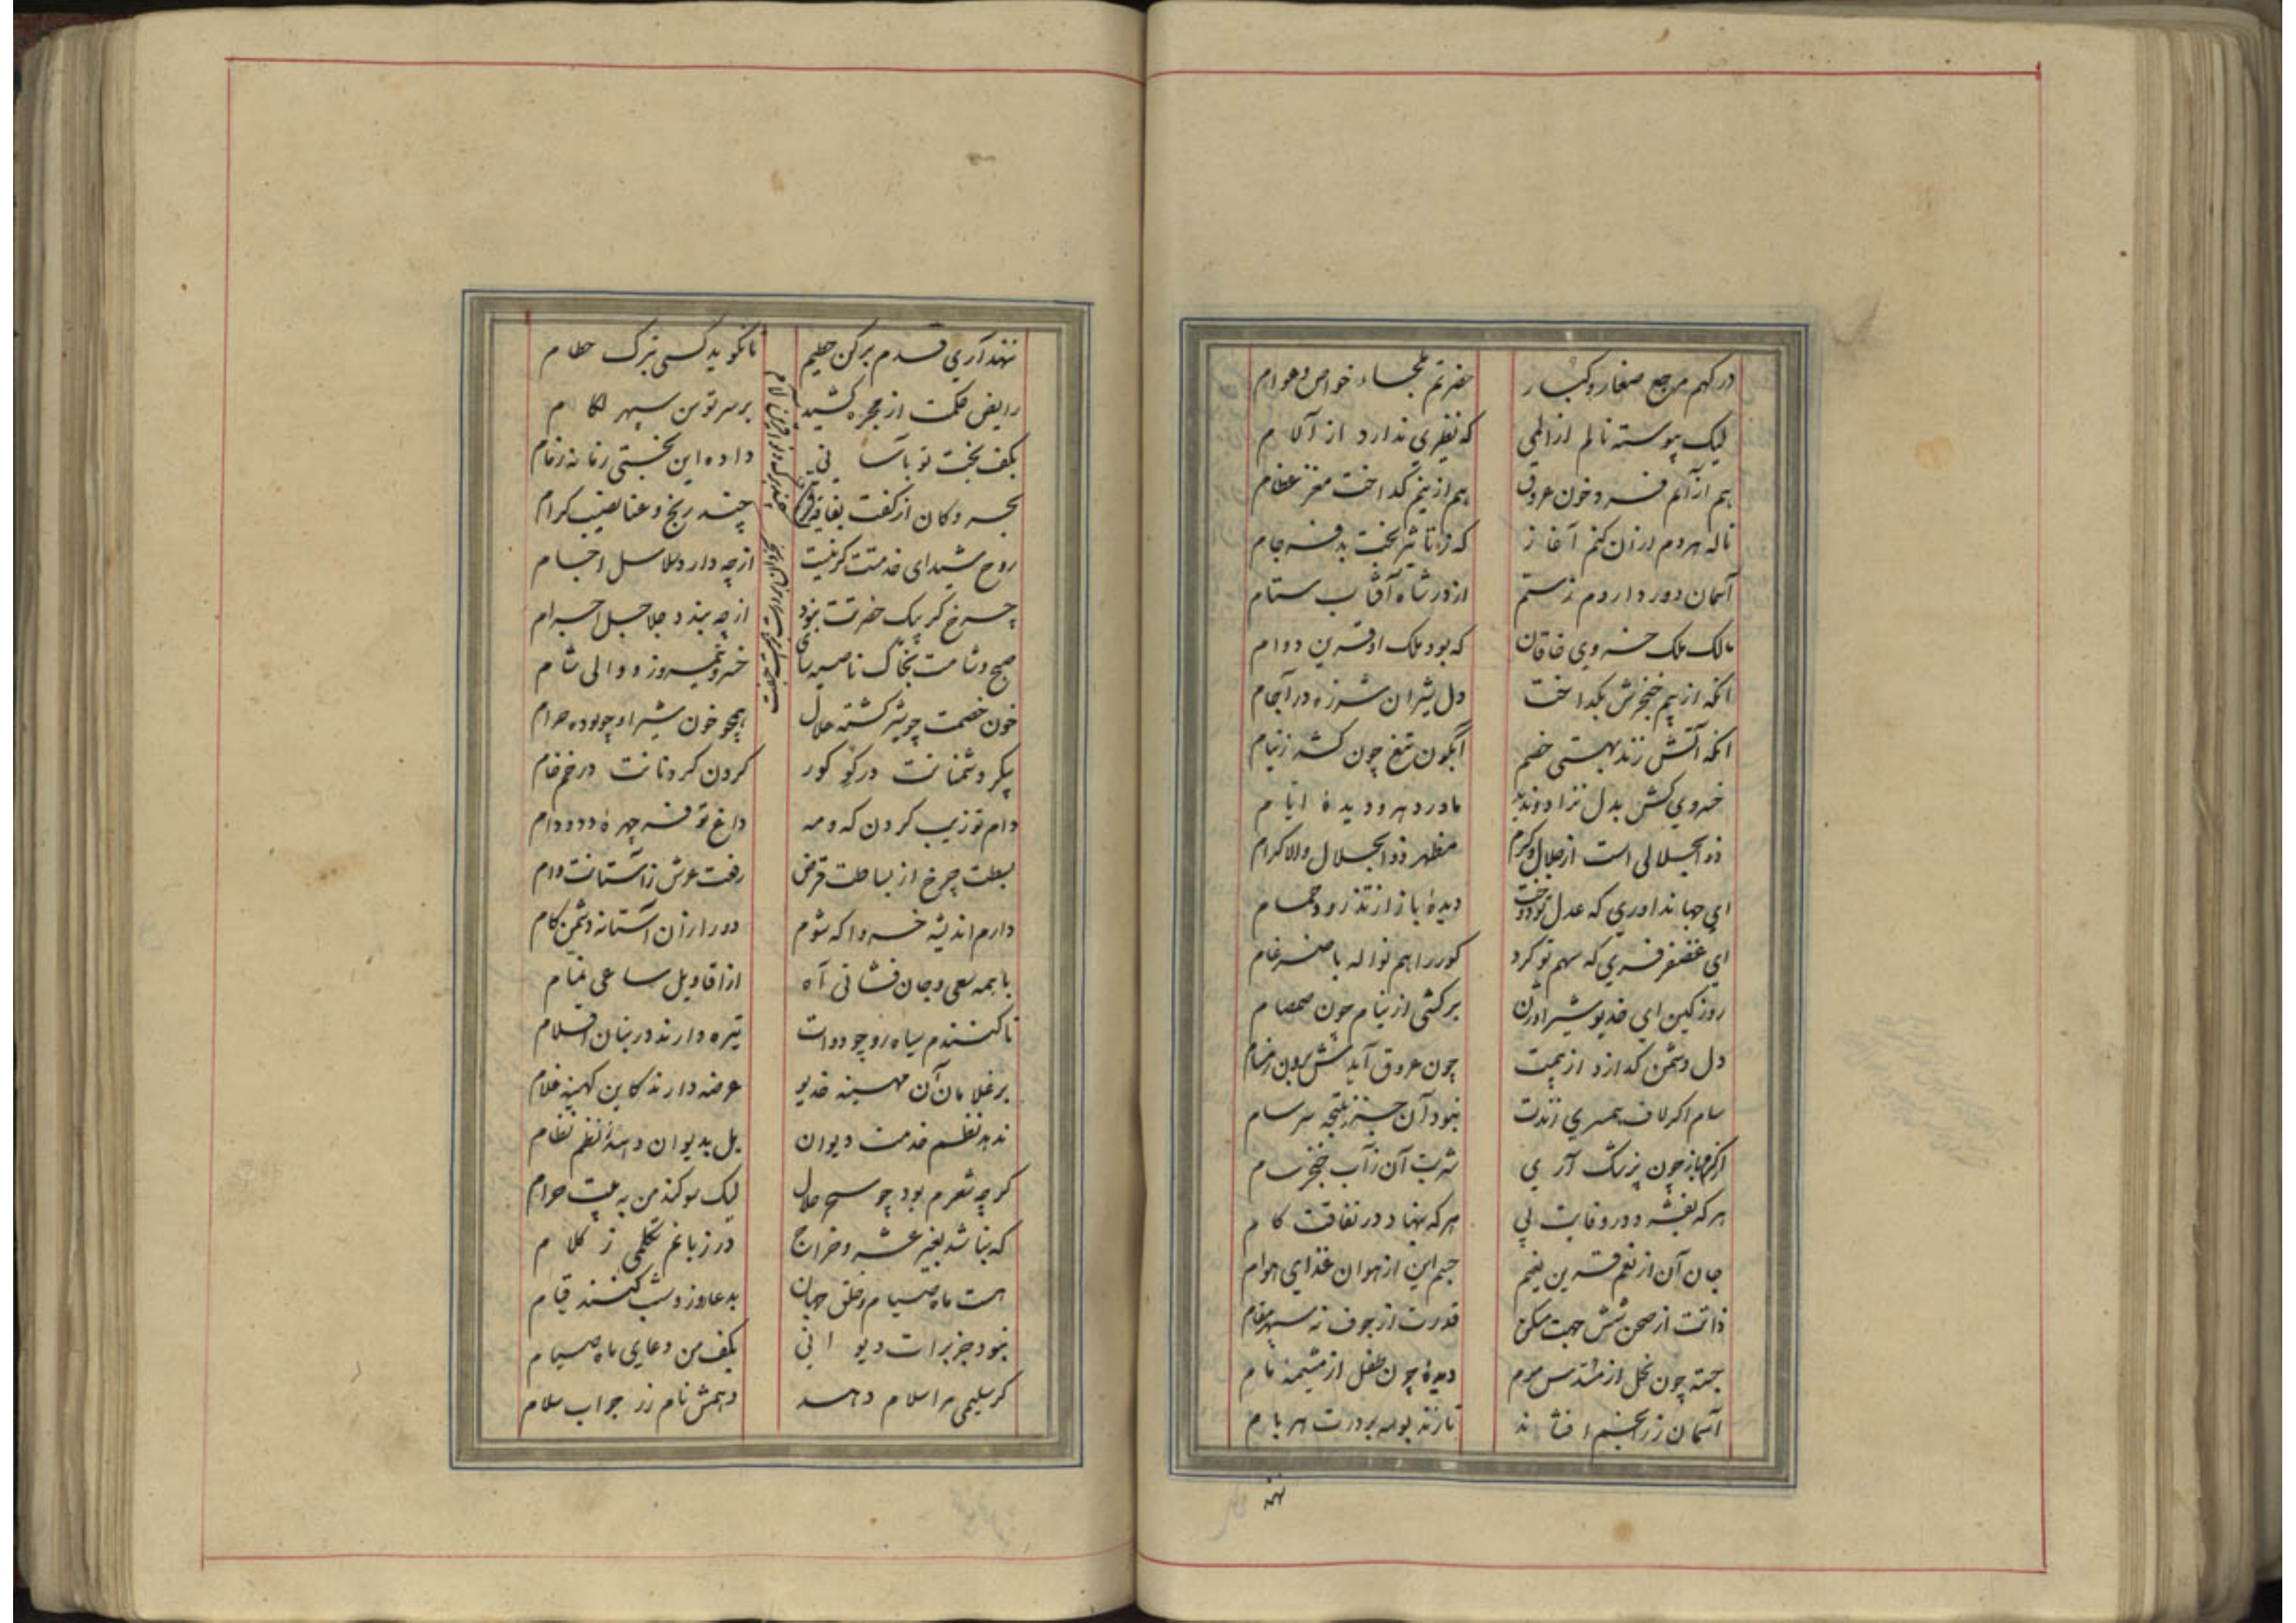 درکهم مرجع صغار و کبار
حضرتم ملجاء خواص و عوام
لیک پیوسته نالم از المی
که نظیری ندارد از آلام
هم از آنم فسرد خون عروق
هم ازینم گداخت مغز عظام
ناله هر دم ازان کنم آغاز
که تاثیر بخت بد فرجام
آسمان دور داردم ز ستم
از در شاه آفتاب ستام
مالک ملک خسروی خاقان
که بود ملک او قرین دوام
انکه از بیم خنجرش بگداخت
دل شیران شرزه در آجام
انکه آتش زند بهستی خصم
آبگون تیغ چون کشد ز نیام
خسروی کش بدل نزاد و ندید
مادر دهر و دیدهٔ ایام
ذو الجلالی است از جلال و کرم
مظهر ذو الجلال و الاکرام
ای جهانداوری که عدل تو دوخت
دیدهٔ باز از تذرو و حمام
ای غضنفر فری که سهم تو کرد
کور را هم نواله با ضرغام
روز کین ای خدیو شیر اوژن
برکشی از نیام چون صمصام
دل دشمن گدازد از بیمت
چون عروق آیدش برون ز مسام
سام اگر لاف همسری زندت
نبود آن جز نتیجه سرسام
چون پزشک آری
شربت آن ز آب خنجر سام
هر که نفشرد در وفایت پی
هر که ننهاد در نفاقت کام
جان آن از نعم قرین نعیم
جسم این از هوان غذای هوام
ذاتت از صحن شش جهت مسکن
قدرت از جوف نه سپهر مقام
جسته چون نحل از مسدس موم
دیدهٔ چون طفل از مشیمه مام
آسمان زر انجم افشاند
تا زند بوسه بر درت هر بام
نهند
ننهد آری قدم برکن حطیم
تا نگوید کسی بترک حطام
رایض حکمت از مجره کشید
بر سر توسن سپهر لگام
بکف بخت تو بآسانی
داده این بختی رمانه زمام
بحر و کان از کفت بفاقه قرین
چند رنج و عنا نصیب کرام
روح شیدای خدمتت گر نیست
از چه دارد سلاسل اجسام
چرخ گر پیک حضرتت نبود
از چه بندد جلاجل اجرام
صبح و شامت بخاک ناصیه سای
خسرو نیمروز و والی شام
خون خصمت چو شیر گشته حلال
همچو خون شیر او چو بوده حرام
پیکر دشمنانت در گو گور
گردن گردنانت در خم خام
دام تو زیب گردن که و مه
داغ تو فر چهرهٔ دد و دام
بسطت چرخ از بساطت قرض
رفعت عرش ز آستانت وام
دارم اندیشه خسروا که شوم
دور از آن آستانه دشمن کام
با همه سعی و جان فشانی آه
از اقاویل ساعی نمام
تا کنندم سیاه رو چو دوات
تیره دارند در بنان اقلام
بر غلامان آن مهینه خدیو
عرضه دارند کاین کهینه غلام
ندهد نظم خدمت دیوان
بل بدیوان دهد نظم نظام
گرچه شعرم بود چو سحر حلال
لیک سوگند من به بیت حرام
که نباشد بغیر عشر و خراج
در زبانم تکلمی ز کلام
هست ماه صیام و خلق جهان
بدعا روز و شب کنند قیام
نبود جز برات دیوانی
بکف من دعای ماه صیام
گر سلیمی مرا سلام دهد
دهمش نام زر جواب سلام